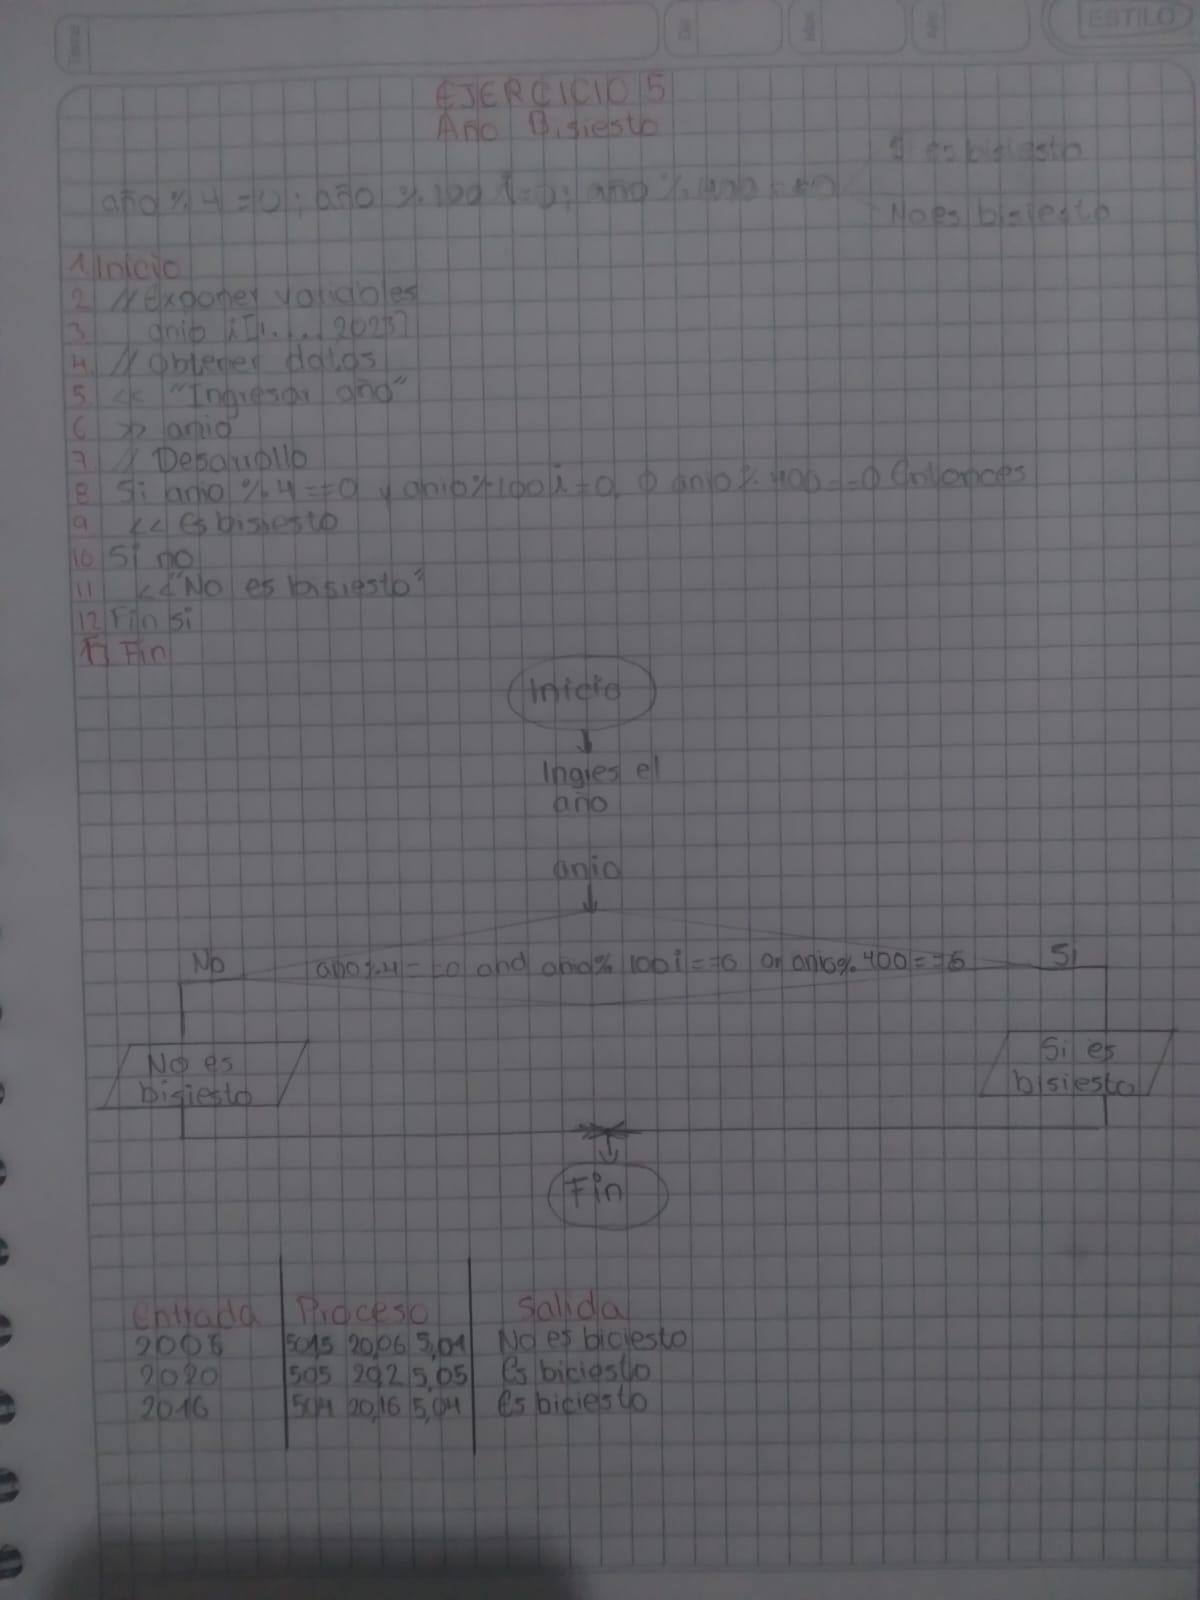 ESTILO
EJERCICIO 5
Año Bisiesto
Si es bisiesto
año % 4 = 0 ; año % 100 != 0 ; año % 400 == 0
No es bisiesto
1 Inicio
2 // Exponer variables
3 anio [1.... 2023]
4 // Obtener datos
5 << "Ingresar año"
6 >> anio
7 // Desarrollo
8 Si anio % 4 == 0 y anio % 100 i=0 O anio % 400 == 0 Entonces
9 << Es bisiesto
10 Si no
11 << "No es bisiesto"
12 Fin si
Fin
Inicio
Ingres el
año
anio
No
ano % 4 == 0 and anio % 100 i==0 or anio % 400 == 0
Si
No es
bisiesto
Si es
bisiesto
Fin
Entrada Proceso Salida
5015 20,06 5,01 No es biciesto
2020 505 202 5,05 Es biciesto
2016 504 20,16 5,04 Es biciesto